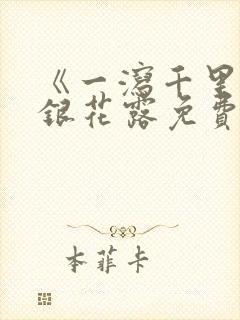 《一瀉千里
銀花露免費
本菲卡